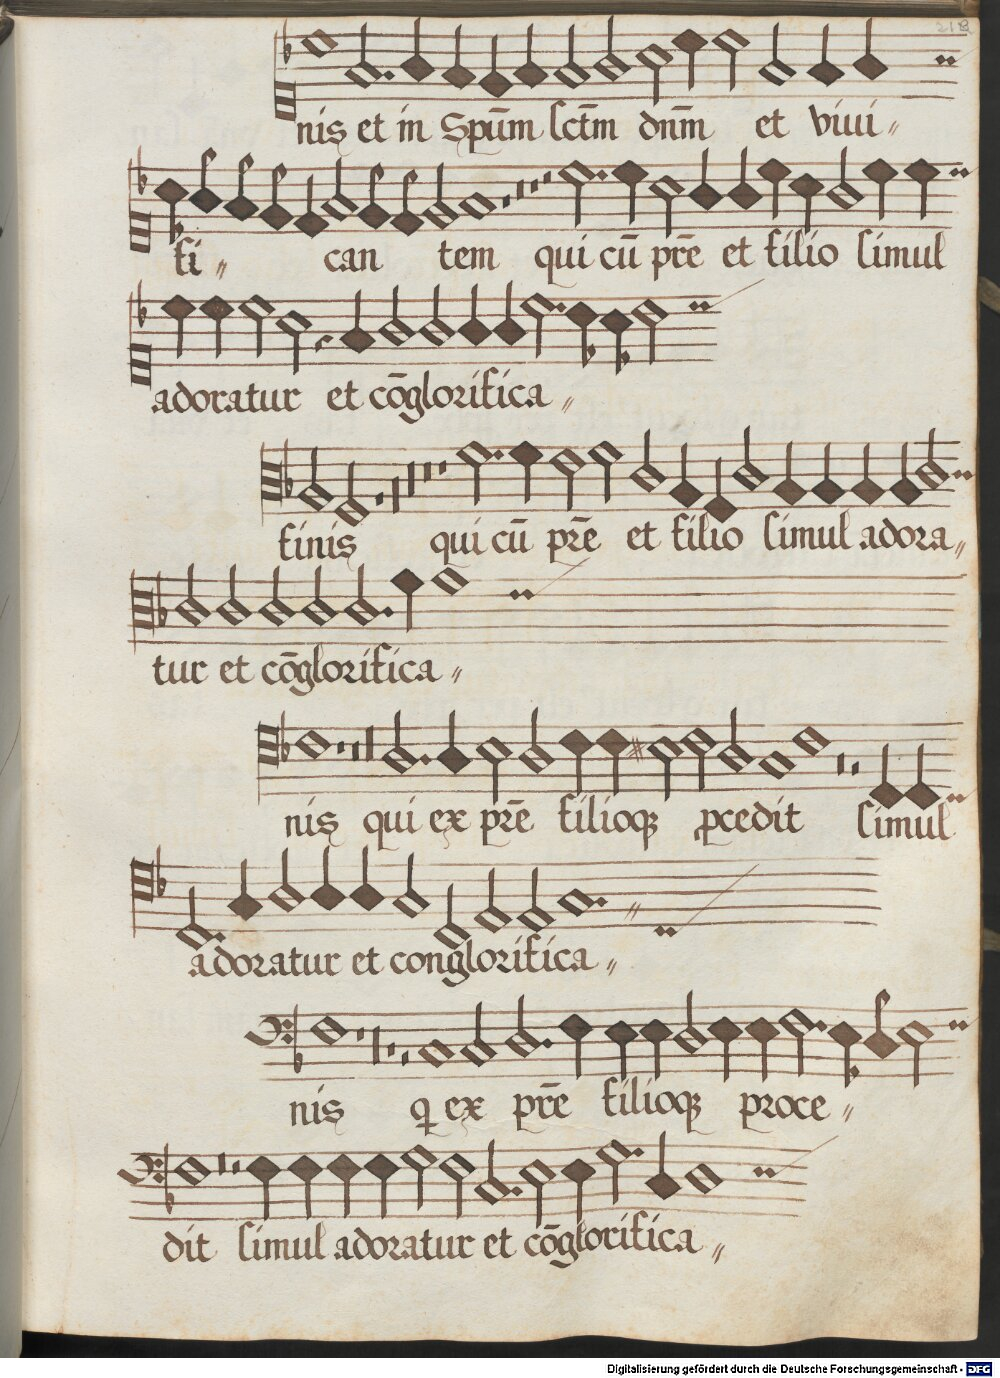 nis et in Spūm sctm̄ dnm̄ et viui〃
fi〃 can tem qui cū prē et filio simul
adoratur et cōglorifica〃
finis qui cū prē et filio simul adora〃
tur et cōglorifica〃
nis qui ex prē filioqꝫ ꝓcedit simul
adoratur et conglorifica〃
nis ꝗ ex prē filioqꝫ proce〃
dit simul adoratur et cōglorifica〃
Digitalisierung gefördert durch die Deutsche Forschungsgemeinschaft - DFG